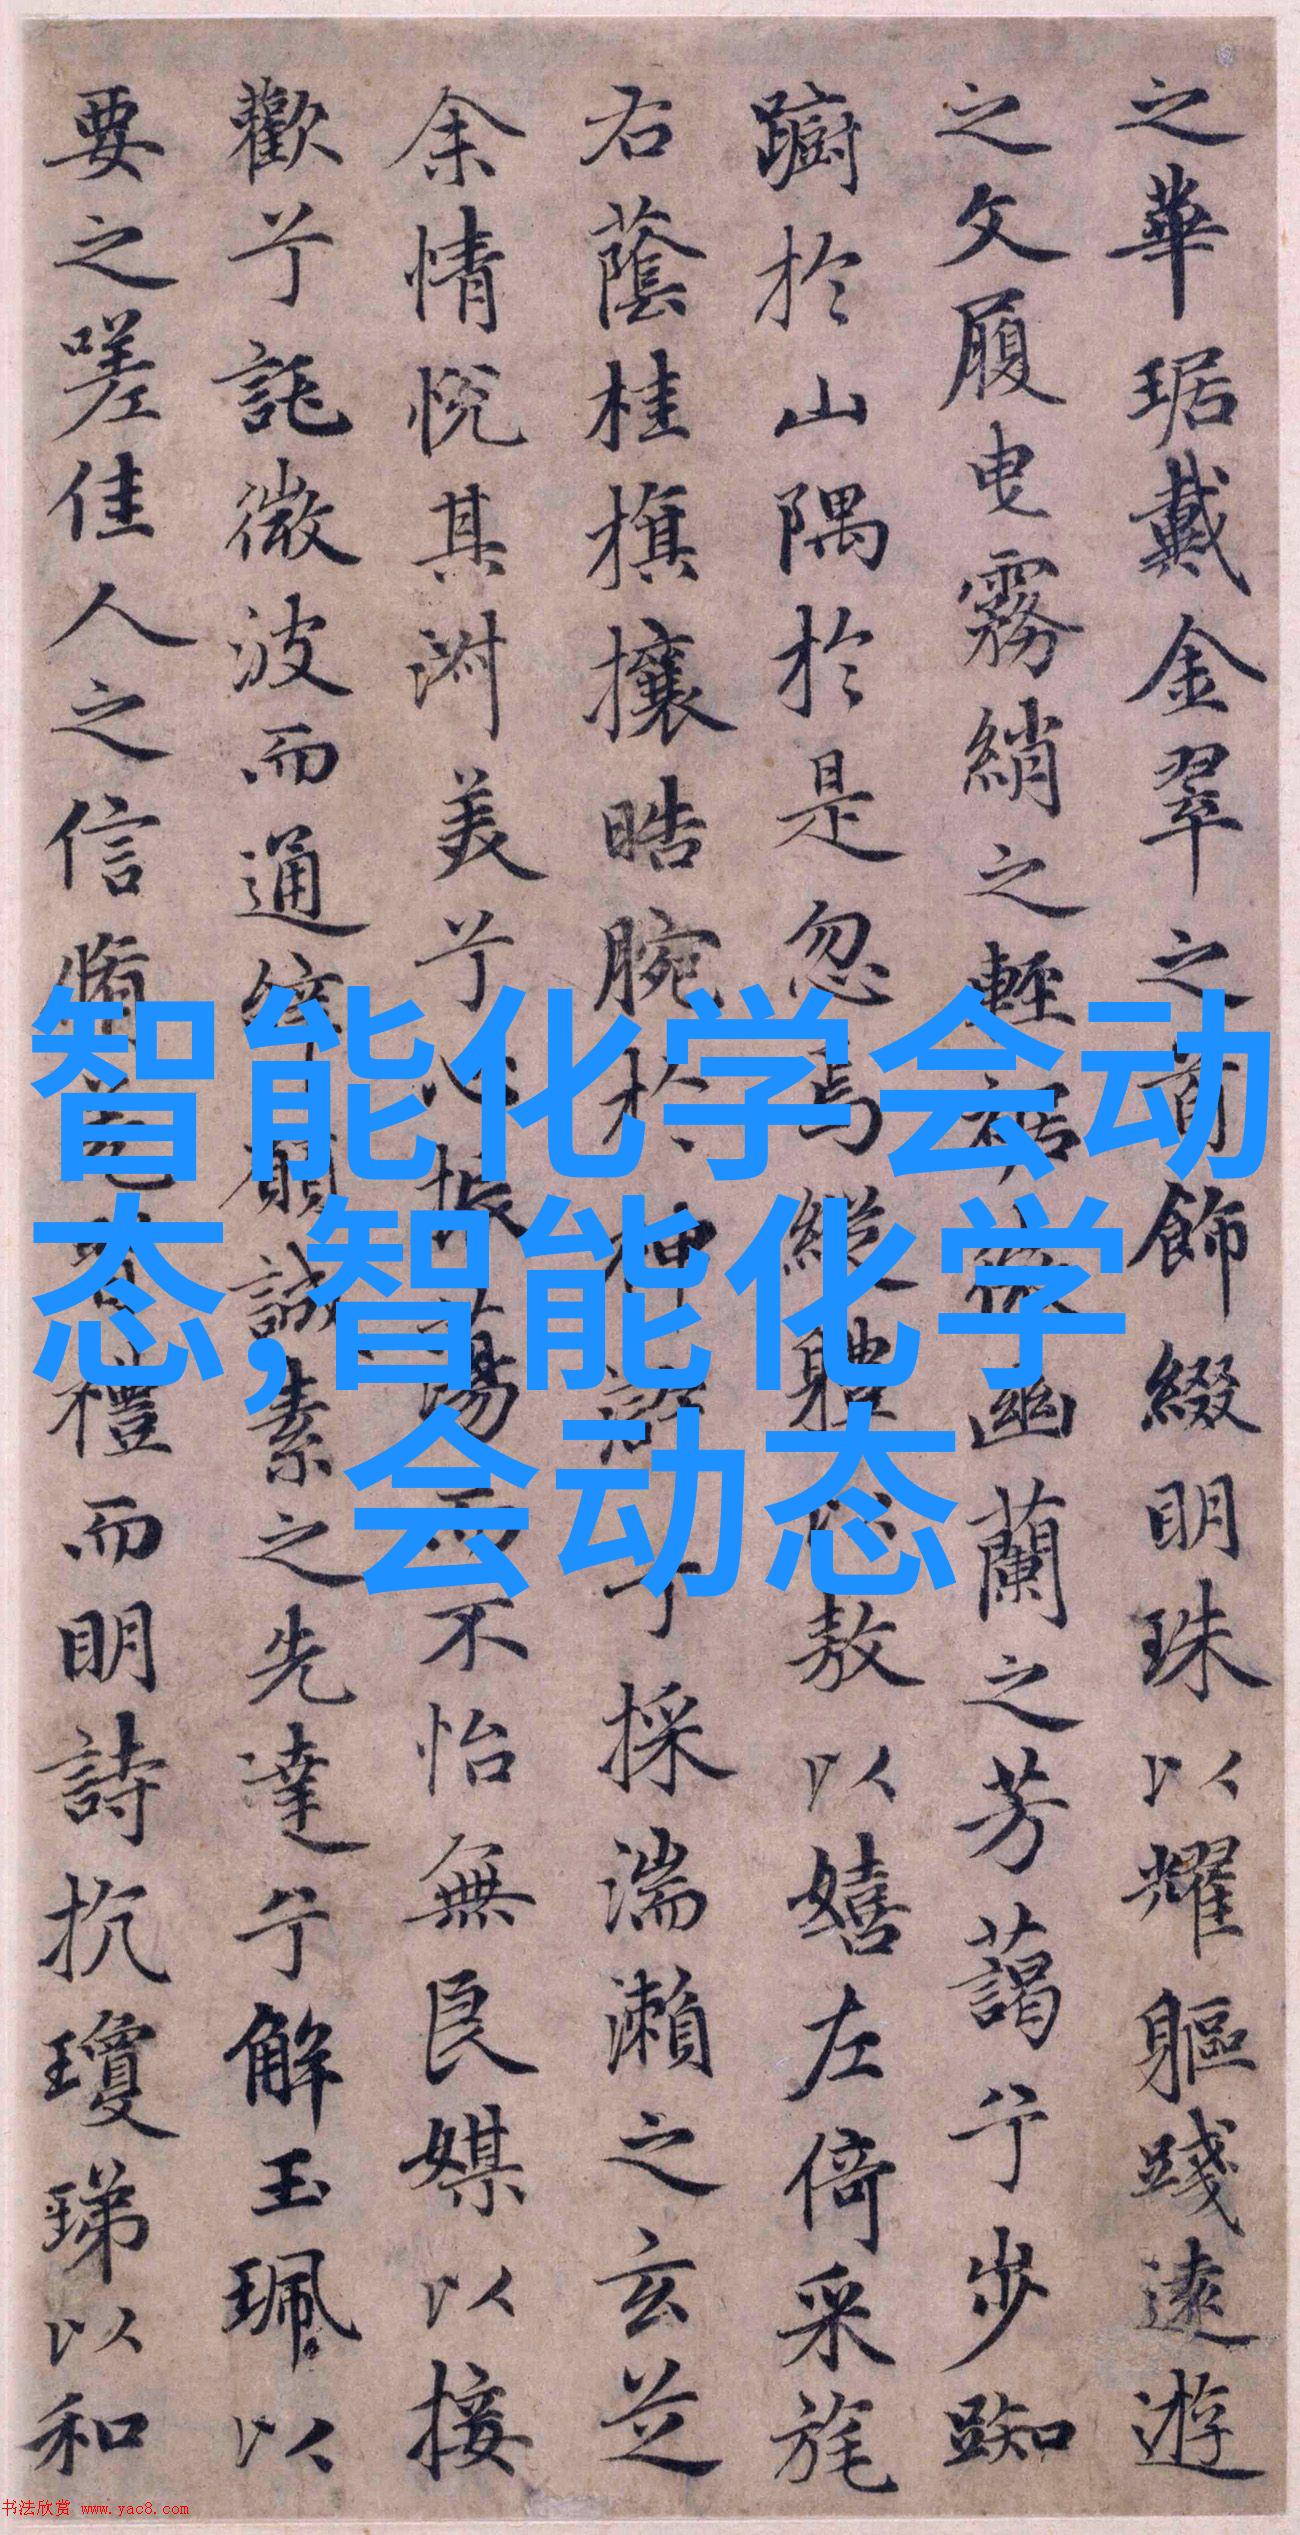 之華琚戴金翠之首飾綴明珠以耀軀踐遠遊
之文履曳霧綃之輕裾微幽蘭之芳藹兮步踟
躕於山隅於是忽焉縱體以敖以嬉左倚采旄
右蔭桂旗攘皓腕於神滸兮採湍瀨之玄芝
余情悅其淑美兮心振蕩而不怡無良媒以接
歡兮託微波而通辭願誠素之先達兮解玉珮以
要之嗟佳人之信脩羌習禮而明詩抗瓊珶以和
智能化学会动
态,智能化学
会动态
书法欣赏 www.yac8.com